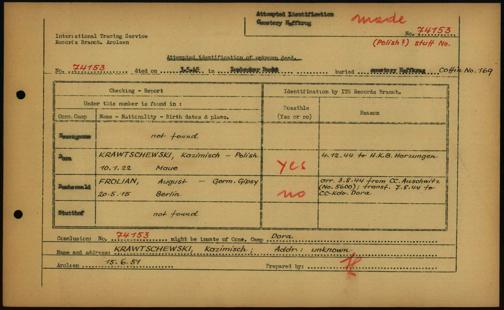 Attempted Identification
Cemetery Haffkrug
made
International Tracing Service
Records Branch, Arolsen
No. 74153
(Polish?) stuff No.
Attempted identification of unknown dead.
No. 74153 died on buried cemetery Haffkrug Coffin No. 169
Checking - Report
Under this number is found in :
Identification by ITS Records Branch.
Conc. Camp
Name - Nationality - Birth dates & place.
Possible
(Yes or no)
Reason
Neuengamme
not found
Dora
KRAWTSCHEWSKI, Kazimisch - Polish
10.1.22
yes
4.12.44 to H.K.B. Harzungen
Buchenwald
FROLIAN, August - Germ. Gipsy
20.5.15 Berlin
no
arr. 3.8.44 from CC. Auschwitz
(No. 5600); transf. 7.8.44 to
CC-Kdo. Dora
Stutthof
not found
Conclusion: No. 74153 might be inmate of Conc. Camp Dora
Name and address: KRAWTSCHEWSKI, Kazimisch; Addr.: unknown
Arolsen 15.6.51 Prepared by: